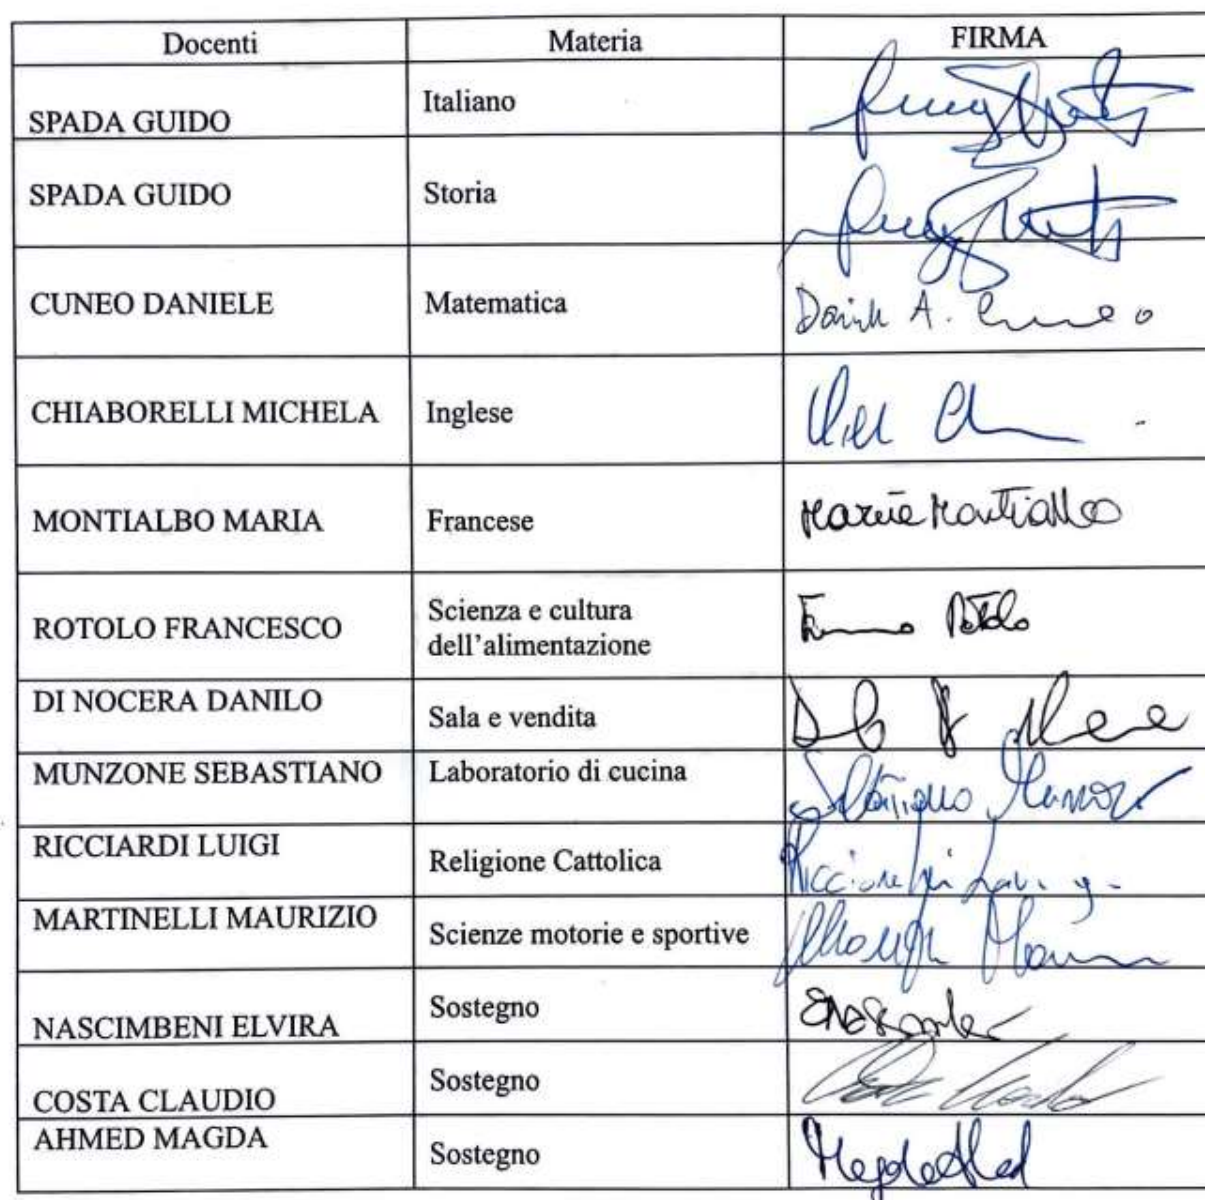 Docenti Materia FIRMA
SPADA GUIDO Italiano
SPADA GUIDO Storia
CUNEO DANIELE Matematica Daniele A. Cuneo
CHIABORELLI MICHELA Inglese
MONTIALBO MARIA Francese Maria Montialbo
ROTOLO FRANCESCO Scienza e cultura
dell'alimentazione
Rotolo
DI NOCERA DANILO Sala e vendita
MUNZONE SEBASTIANO Laboratorio di cucina
RICCIARDI LUIGI Religione Cattolica Ricciardi Luigi
MARTINELLI MAURIZIO Scienze motorie e sportive
NASCIMBENI ELVIRA Sostegno
COSTA CLAUDIO Sostegno
AHMED MAGDA Sostegno Magda Ahmed